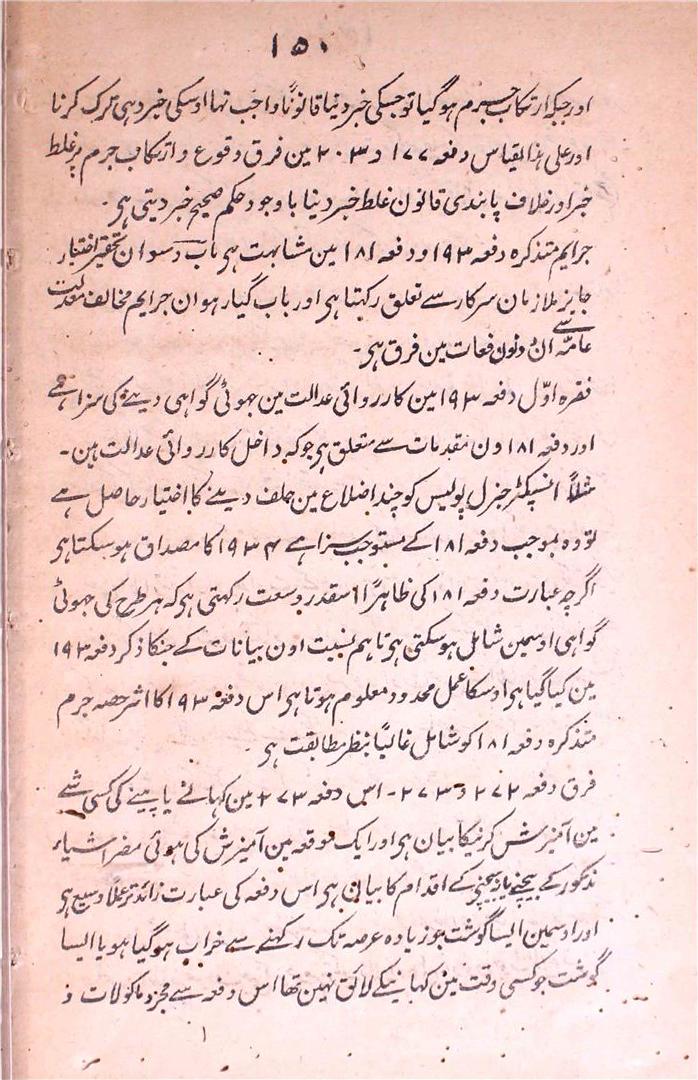 ۱۵۰
اور جبکہ ارتکاب جرم ہوگیا تو جسکی خبر دنیا قانوناً واجب تہا اوسکی خبر دہی ترک کرنا
اور علی ہذا لقیاس دفعہ ۱۷۷ و ۲۰۳ مین فرق وقوع و ارتکاب جرم پر غلط
خبر اور خلاف پابندی قانون غلط خبر دینا باوجود حکم صحیح خبر دیتی ہی۔
جرایم متذکرہ دفعہ ۱۹۳ و دفعہ ۱۸۱ مین مشابہت ہی باب دسوان تحقیر اختیار
جایز ملازمان سرکار سے تعلق رکہتا ہی اور باب گیارہوان جرایم مخالف معدلت
عامہ سے ان دونون دفعات مین فرق ہی۔
فقرہ اوّل دفعہ ۱۹۳ مین کارروائی عدالت مین جہوٹی گواہی دینے کی سزا ہے
اور دفعہ ۱۸۱ ون مقدمات سے متعلق ہی جو کہ داخل کارروائی عدالت ہین۔
مثلاً انسپکٹر جنرل پولیس کو چند اضلاع مین حلف دینے کا اختیار حاصل ہے
تو وہ بموجب دفعہ ۱۸۱ کے مستوجب سزا ہے ۱۹۳ کا مصداق ہو سکتا ہی
اگرچہ عبارت دفعہ ۱۸۱ کی ظاہراً اسقدر وسعت رکہتی ہی کہ ہر طرح کی جہوٹی
گواہی اوسمین شامل ہوسکتی ہی تاہم بنسبت اون بیانات کے جنکا ذکر دفعہ ۱۹۳
مین کیا گیا ہی اوسکا عمل محدود معلوم ہوتا ہی اس دفعہ ۱۹۳ کا اثر حصہ جرم
متذکرہ دفعہ ۱۸۱ کو شامل غالباً بنظر مطابقت ہی۔
فرق دفعہ ۲۷۲ و ۲۷۳۔ اس دفعہ ۲۷۳ مین کہانے یا پینے کی کسی شے
مین آمیزش کرنیکا بیان ہی اور ایک موقعہ مین آمیزش کی ہوئی مضر اشیاء
مذکور کے بیچنے یا بیچنے کے اقدام کا بیان ہی اس دفعہ کی عبارت زائد تر عملاً وسیع ہی
اور اوسمین ایسا گوشت جو زیادہ عرصہ تک رکہنے سے خراب ہوگیا ہو یا ایسا
گوشت جو کسی وقت مین کہانیکے لائق نہین تہا اس دفعہ سے مجرد ماکولات و